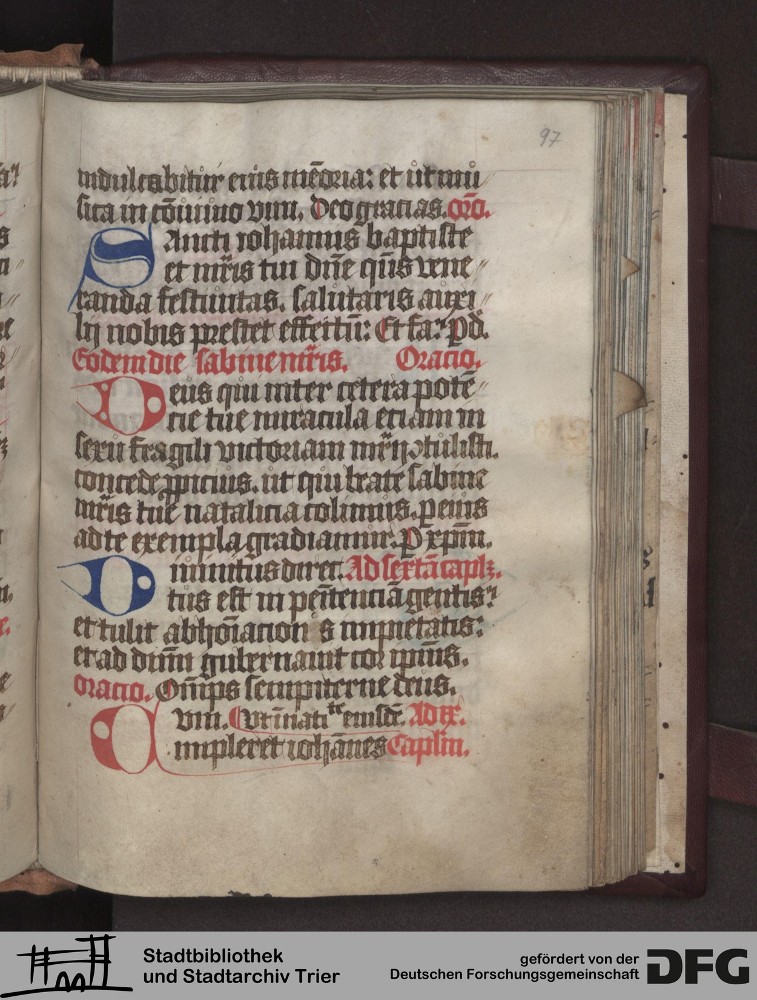 97
indulcabitur eius mēoria: et ut mu
sica in cōuiuio vini. Deo gracias. orō.
Sancti iohannis baptiste
et mr̄is tui dn̄e qs̄ vene
randa festiuitas. salutaris auxi
lij nobis prestet effectū: Et fa. pd.
Eodem die sabine mr̄is. Oracio.
Deus qui inter cetera potē
cie tue miracula etiam in
sexu fragili victoriam mr̄ij ꝯtulisti.
concede ꝓpicius. ut qui beate sabine
mr̄is tue natalicia colimus. ꝑ eius
ad te exempla gradiamur. P xpm̄.
Diuinitus direct. Ad sextā caplm.
tus est in penitenciā gentis:
et tulit abhoīacion s impietatis:
et ad dn̄m gubernauit cor ipius.
Oracio. Om̄ps sempiterne deus.
vm. eiusdē. Ad ix.
Impleret iohānes Caplm.
Stadtbibliothek
und Stadtarchiv Trier
gefördert von der
Deutschen Forschungsgemeinschaft
DFG